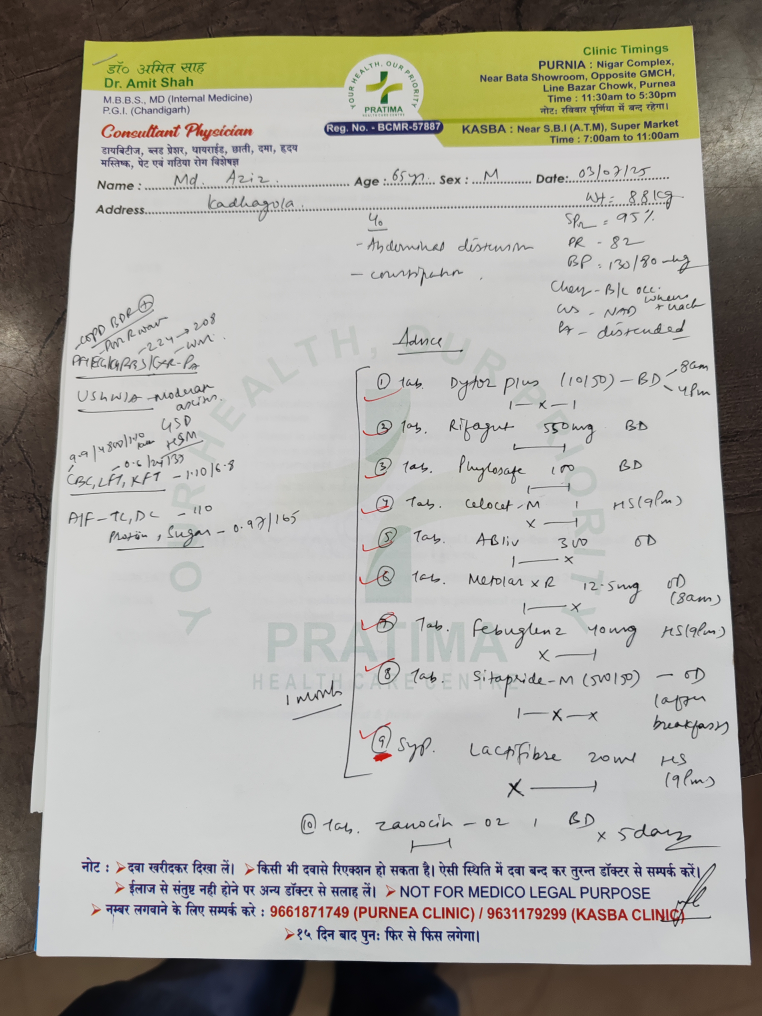 डॉ० अमित साह
Dr. Amit Shah
M.B.B.S., MD (Internal Medicine)
P.G.I. (Chandigarh)
Consultant Physician
डायबिटीज, ब्लड प्रेशर, थायराईड, छाती, दमा, हृदय
मस्तिष्क, पेट एवं गठिया रोग विशेषज्ञ
YOUR HEALTH, OUR PRIORITY
PRATIMA
HEALTH CARE CENTRE
Reg. No. - BCMR-57887
Clinic Timings
PURNIA : Nigar Complex,
Near Bata Showroom, Opposite GMCH,
Line Bazar Chowk, Purnea
Time : 11:30am to 5:30pm
नोट: रविवार पूर्णिया में बन्द रहेगा।
KASBA : Near S.B.I (A.T.M), Super Market
Time : 7:00am to 11:00am
Name : Md. Aziz Age : 65yr Sex : M Date: 03/07/25
Address Kadhagola Wt = 88kg
C/o
- Abdominal distension
- constipation
SPO2 = 95%
PR - 82
BP = 130/80
Chest - B/L occ.
CVS - NAD
P/A - distended
COPD
224 → 208
USG W/A - moderate ascites
GSD
HSM
CBC, LFT, KFT - 1.10/6.8
A/F - TC, DC - 110
Protein, Sugar - 0.97/165
Advice
① Tab. Dytor plus (10/50) - BD 8am 4pm
② Tab. Rifagut 550mg BD
③ Tab. Phylosafe 100 BD
④ Tab. Celocet-M 1 HS (9pm)
⑤ Tab. ABliv 300 OD
⑥ Tab. Metolar XR 12.5mg OD (8am)
⑦ Tab. Febuglenz 40mg HS (9pm)
⑧ Tab. Sitapride-M (500/50) - OD (after breakfast)
1 month
⑨ Syp. Lactifibre 20ml HS (9pm)
⑩ Tab. Zanocin-OZ 1 BD x 5 days
YOUR HEALTH, OUR PRIORITY
PRATIMA
HEALTH CARE CENTRE
नोट : ➢ दवा खरीदकर दिखा लें। ➢ किसी भी दवासे रिएक्शन हो सकता है। ऐसी स्थिति में दवा बन्द कर तुरन्त डॉक्टर से सम्पर्क करें।
➢ ईलाज से संतुष्ट नही होने पर अन्य डॉक्टर से सलाह लें। ➢ NOT FOR MEDICO LEGAL PURPOSE
➢ नम्बर लगवाने के लिए सम्पर्क करे : 9661871749 (PURNEA CLINIC) / 9631179299 (KASBA CLINIC)
➢ १५ दिन बाद पुनः फिर से फिस लगेगा।